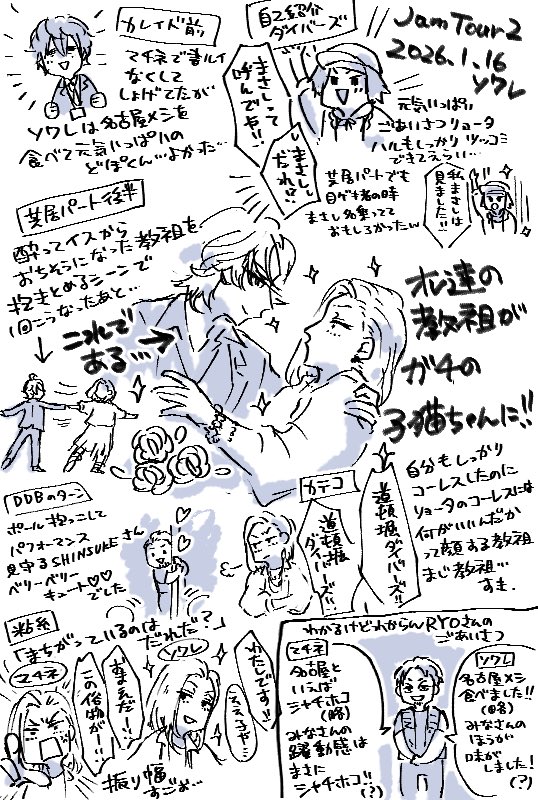 カレイド前
マチネで書ルイ
なくして
しょげてたが
ソワレは名古屋メシを
食べて元気いっぱいの
どぽくん…よかった…
自己紹介
ダイバーズ
まさしって
呼んでや!!
まさしって
だれ!?
Jam Tour2
2026.1.16
ソワレ
元気いっぱい
ごあいさつリョータ
ハルもしっかりツッコミ
できてえらい…
芝居パートでも
目ゲキ者の時
まさし名乗ってて
おもしろかったw
私まさしは
見ました!!
芝居パート後半
酔ってイスから
おちそうになった教祖を
抱きとめるシーンで
1回こうなったあと…
これで
ある…→
オレ達の
教祖が
ガチの
子猫ちゃんに!!
カテコ
道頓堀
ダイバーズ!!
道頓堀ダイバーズ!!
自分もしっかり
コーレスしたのに
リョータのコーレスには
何がいいんだか
って顔する教祖
まじ教祖…
すき.
DDBのターン
ポール抱っこして
パフォーマンス
見守るSHINSUKEさん
ベリーベリー
キュート♡♡
でした
粘糸
「まちがっているのは
だれだ?」
マチネ
お前だ!
この俗物が!!
ソワレ
わたしです!!
振り幅
すごぉ…
わかるけどわからんRYOさんの
ごあいさつ
マチネ
名古屋と
いえば
シャチホコ
(略)
みなさんの
躍動感は
まさに
シャチホコ!!
(?)
ソワレ
名古屋メシ
食べました!!
(略)
みなさんの
ほうが
味が
しました!
(?)